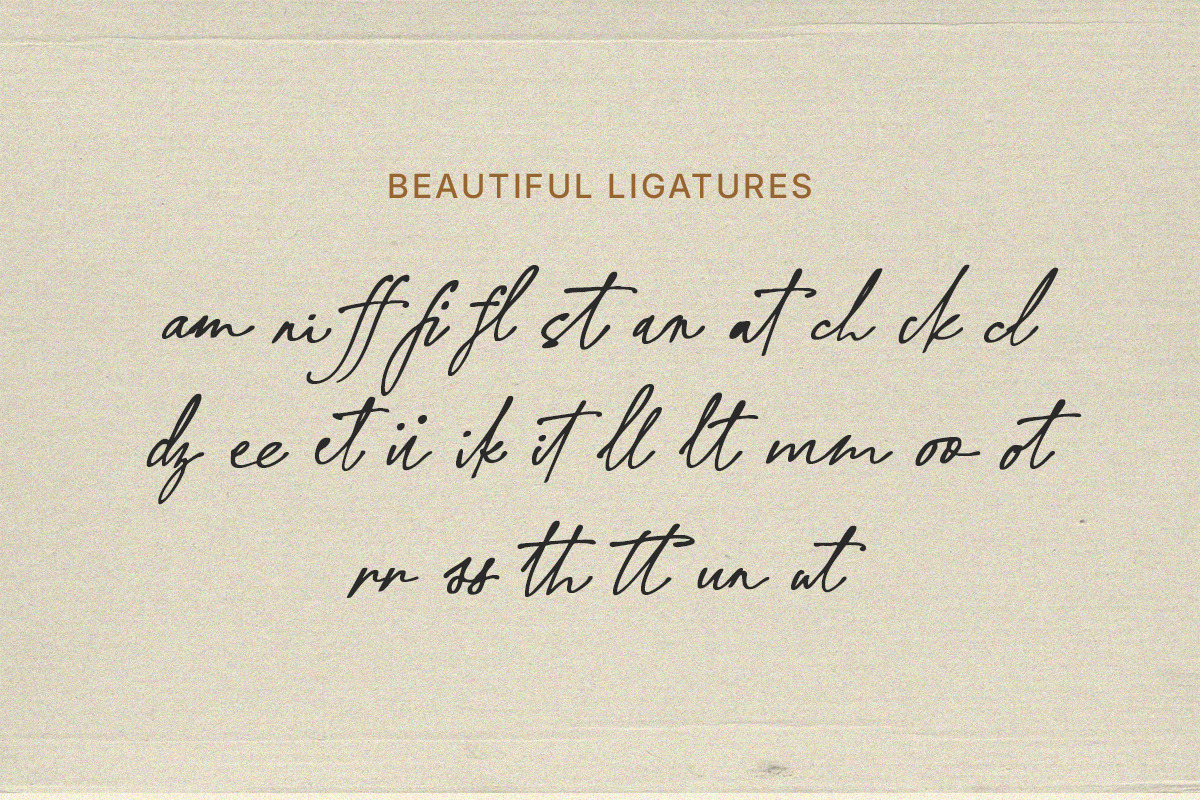 BEAUTIFUL LIGATURES
am ni ff fi fl st an at ch ck cl
dz ee et ii ik it ll lt mm oo ot
rr ss th tt un ut